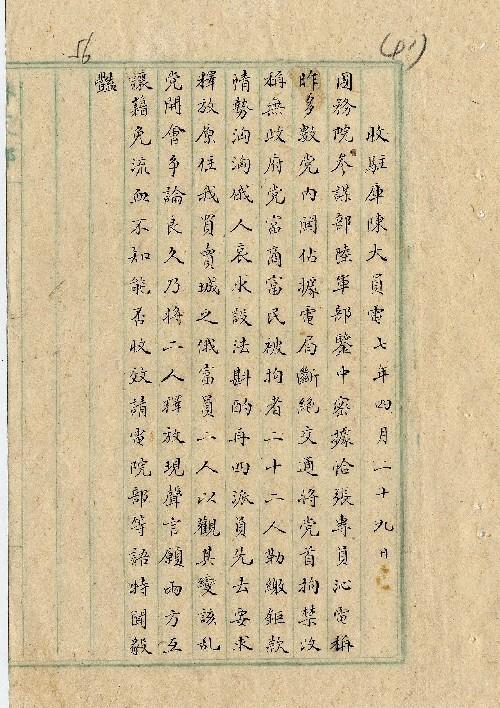 (41)
56
收駐庫陳大員電七年四月二十九日
國務院參謀部陸軍部鑒中密據恰張專員沁電稱
昨多數党內鬨佔據電局斷絕交通將党首拘禁改
稱無政府党富商富民破拘者二十二人勒繳鉅款
隋勢洶洶俄人哀求設法斟酌再四派員先去要求
釋放原住我買賣城之俄富員二人以觀其變該乱
党開會爭論良久乃將二人釋放現聲言願兩方互
讓藉免流血不知能否收效請電院部等語特聞毅
豔